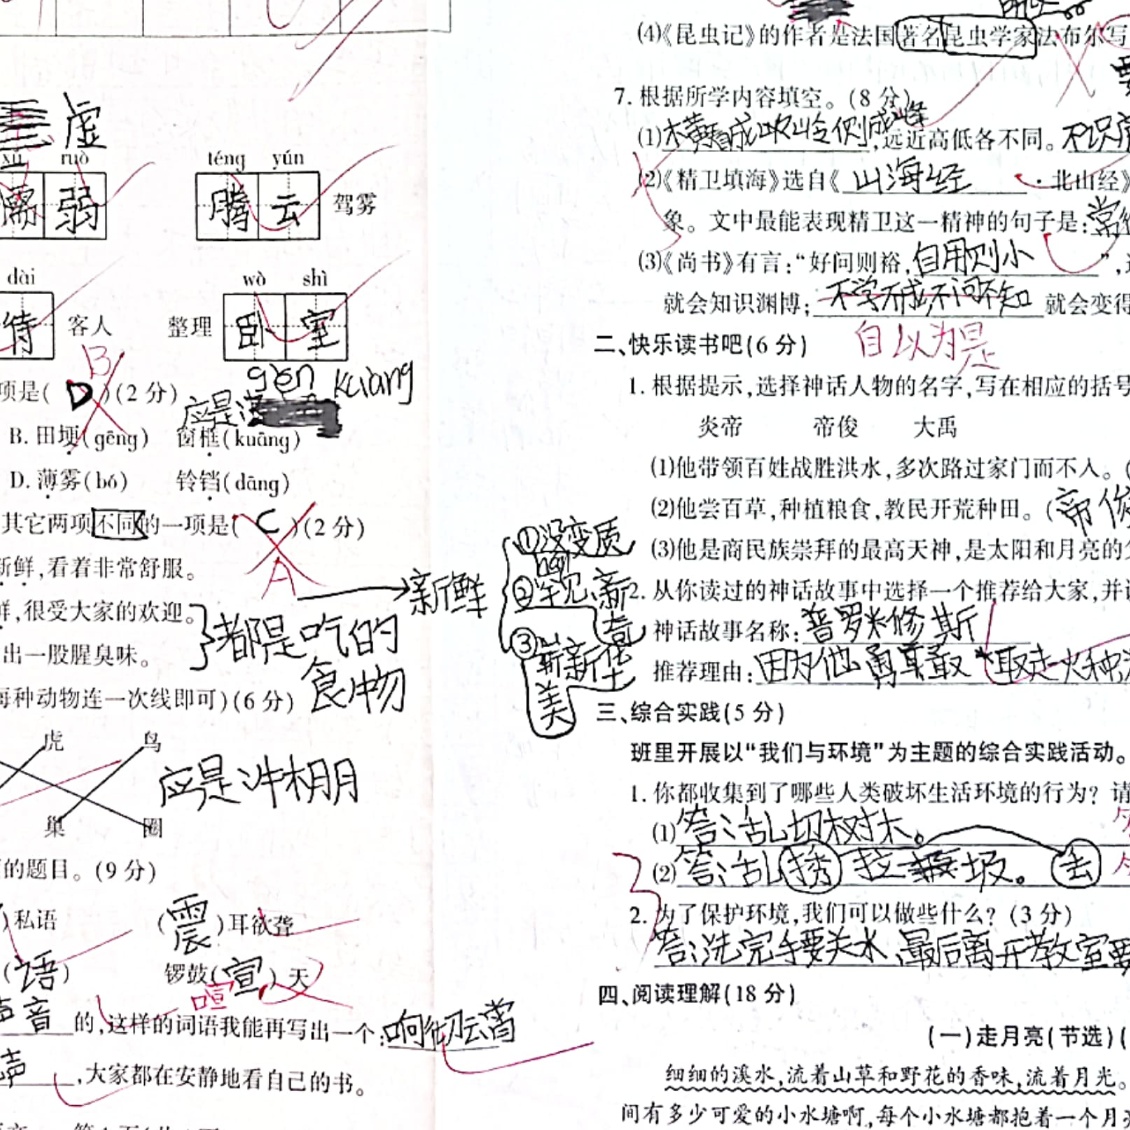 虚
xū ruò
弱
téng yún
腾云 驾雾
dài
待 客人
wò shì
整理 卧室
B
项是( D )(2分)
gěn kuàng
应是
B. 田埂(gēng) 窗框(kuāng)
D. 薄雾(bó) 铃铛(dāng)
其它两项不同的一项是( C )(2分)
A
新鲜
新鲜,看着非常舒服。
鲜,很受大家的欢迎。
出一股腥臭味。
都是吃的
食物
每种动物连一次线即可)(6分)
虎 鸟
巢 圈
应是冲棚
的题目。(9分)
)私语 (震)耳欲聋
(语) 锣鼓(宣)天
喧
声音 的,这样的词语我能再写出一个:响彻云霄
声 ,大家都在安静地看自己的书。
①没变质
②罕见,新
③新华
美
(4)《昆虫记》的作者是法国著名昆虫学家法布尔写
7. 根据所学内容填空。(8分)
(1)横看成岭侧成峰,远近高低各不同。不识
(2)《精卫填海》选自《山海经·北山经》
象。文中最能表现精卫这一精神的句子是:常
(3)《尚书》有言:“好问则裕,自用则小”,
就会知识渊博;不学不成,不问不知 就会变得
自以为是
二、快乐读书吧(6分)
1. 根据提示,选择神话人物的名字,写在相应的括号
炎帝 帝俊 大禹
(1)他带领百姓战胜洪水,多次路过家门而不入。(
(2)他尝百草,种植粮食,教民开荒种田。(帝俊
(3)他是商民族崇拜的最高天神,是太阳和月亮的
2. 从你读过的神话故事中选择一个推荐给大家,并
神话故事名称:普罗米修斯
推荐理由:因为他勇敢 取走火种
三、综合实践(5分)
班里开展以“我们与环境”为主题的综合实践活动。
1. 你都收集到了哪些人类破坏生活环境的行为?请
(1)答:乱切树木。
(2)答:乱 圾。 去
2. 为了保护环境,我们可以做些什么?(3分)
答:洗完手要关水,最后离开教室要
四、阅读理解(18分)
(一)走月亮(节选)(
细细的溪水,流着山草和野花的香味,流着月光。
间有多少可爱的小水塘啊,每个小水塘都抱着一个月亮